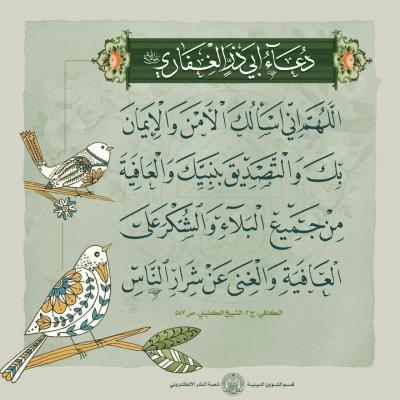 دُعَاءُ أَبِي ذَرٍّ الْغِفَارِي
اَللّٰهُمَّ اِنّي اَسْأَلُكَ الْأَمْنَ وَالْإِيمَانَ
بِكَ وَالتَّصْدِيقَ بِنَبِيِّكَ وَالْعَافِيَةَ
مِنْ جَمِيعِ الْبَلَاءِ وَالشُّكْرَ عَلَى
الْعَافِيَةِ وَالْغِنَى عَنْ شِرَارِ النَّاسِ
الكافي، ج٢، الشيخ الكليني، ص ٥٨٧
قسم الشؤون الدينية شعبة النشر الالكتروني